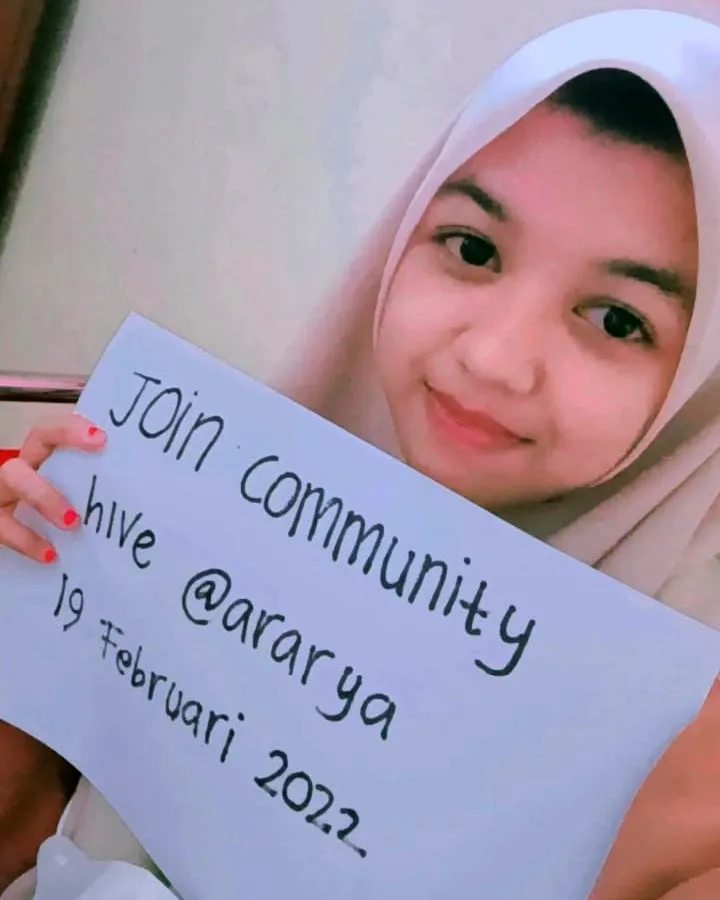 Join community
hive @ararya
19 Februari 2022